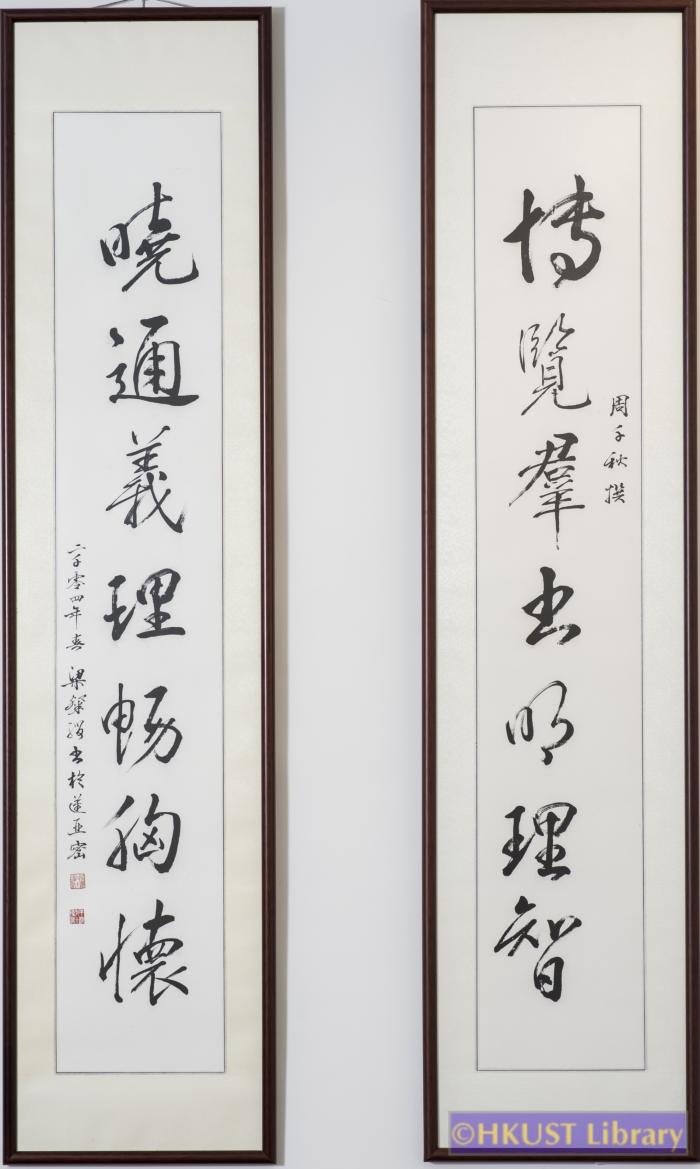 博覽羣书明理智
周千秋撰
曉通義理暢胸懷
二千零四年春 梁粲纓书於蓮亚密
©HKUST Library